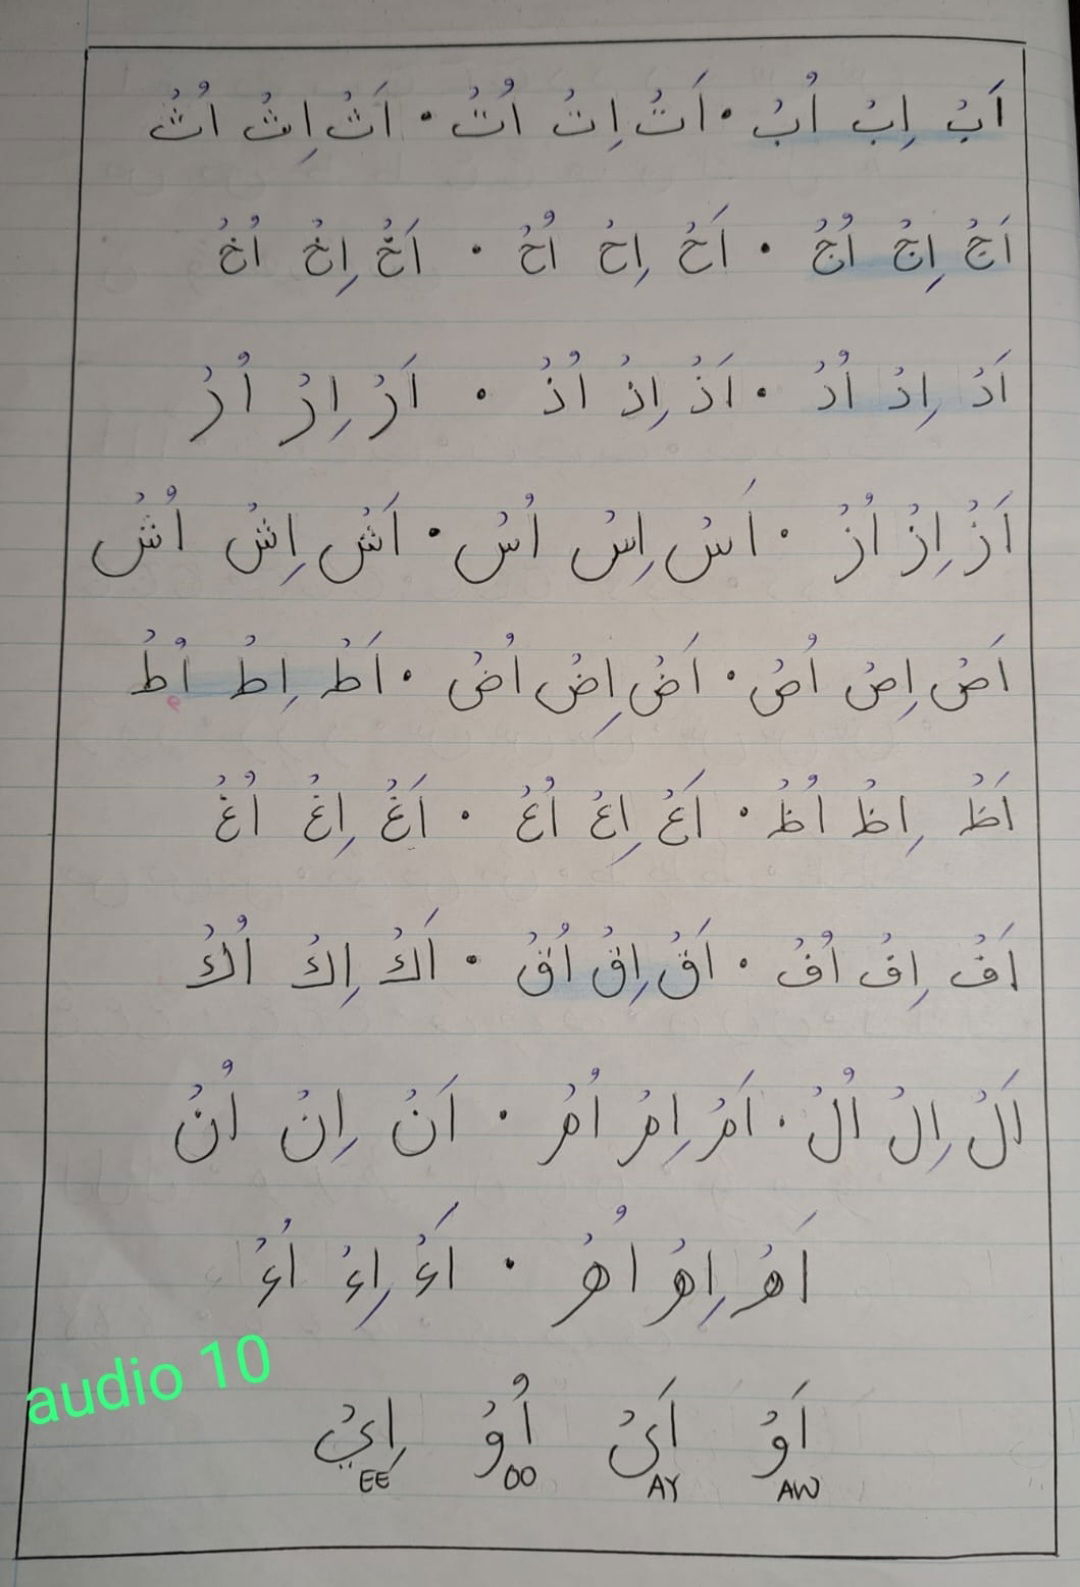 اَبْ اِبْ اُبْ • اَتْ اِتْ اُتْ • اَثْ اِثْ اُثْ
اَجْ اِجْ اُجْ • اَحْ اِحْ اُحْ • اَخْ اِخْ اُخْ
اَدْ اِدْ اُدْ • اَذْ اِذْ اُذْ • اَرْ اِرْ اُرْ
اَزْ اِزْ اُزْ • اَسْ اِسْ اُسْ • اَشْ اِشْ اُشْ
اَصْ اِصْ اُصْ • اَضْ اِضْ اُضْ • اَطْ اِطْ اُطْ
اَظْ اِظْ اُظْ • اَعْ اِعْ اُعْ • اَغْ اِغْ اُغْ
اَفْ اِفْ اُفْ • اَقْ اِقْ اُقْ • اَكْ اِكْ اُكْ
اَلْ اِلْ اُلْ • اَمْ اِمْ اُمْ • اَنْ اِنْ اُنْ
اَهْ اِهْ اُهْ • اَءْ اِءْ اُءْ
audio 10
اَوْ اَىْ اُوْ اِيْ
AW AY OO EE